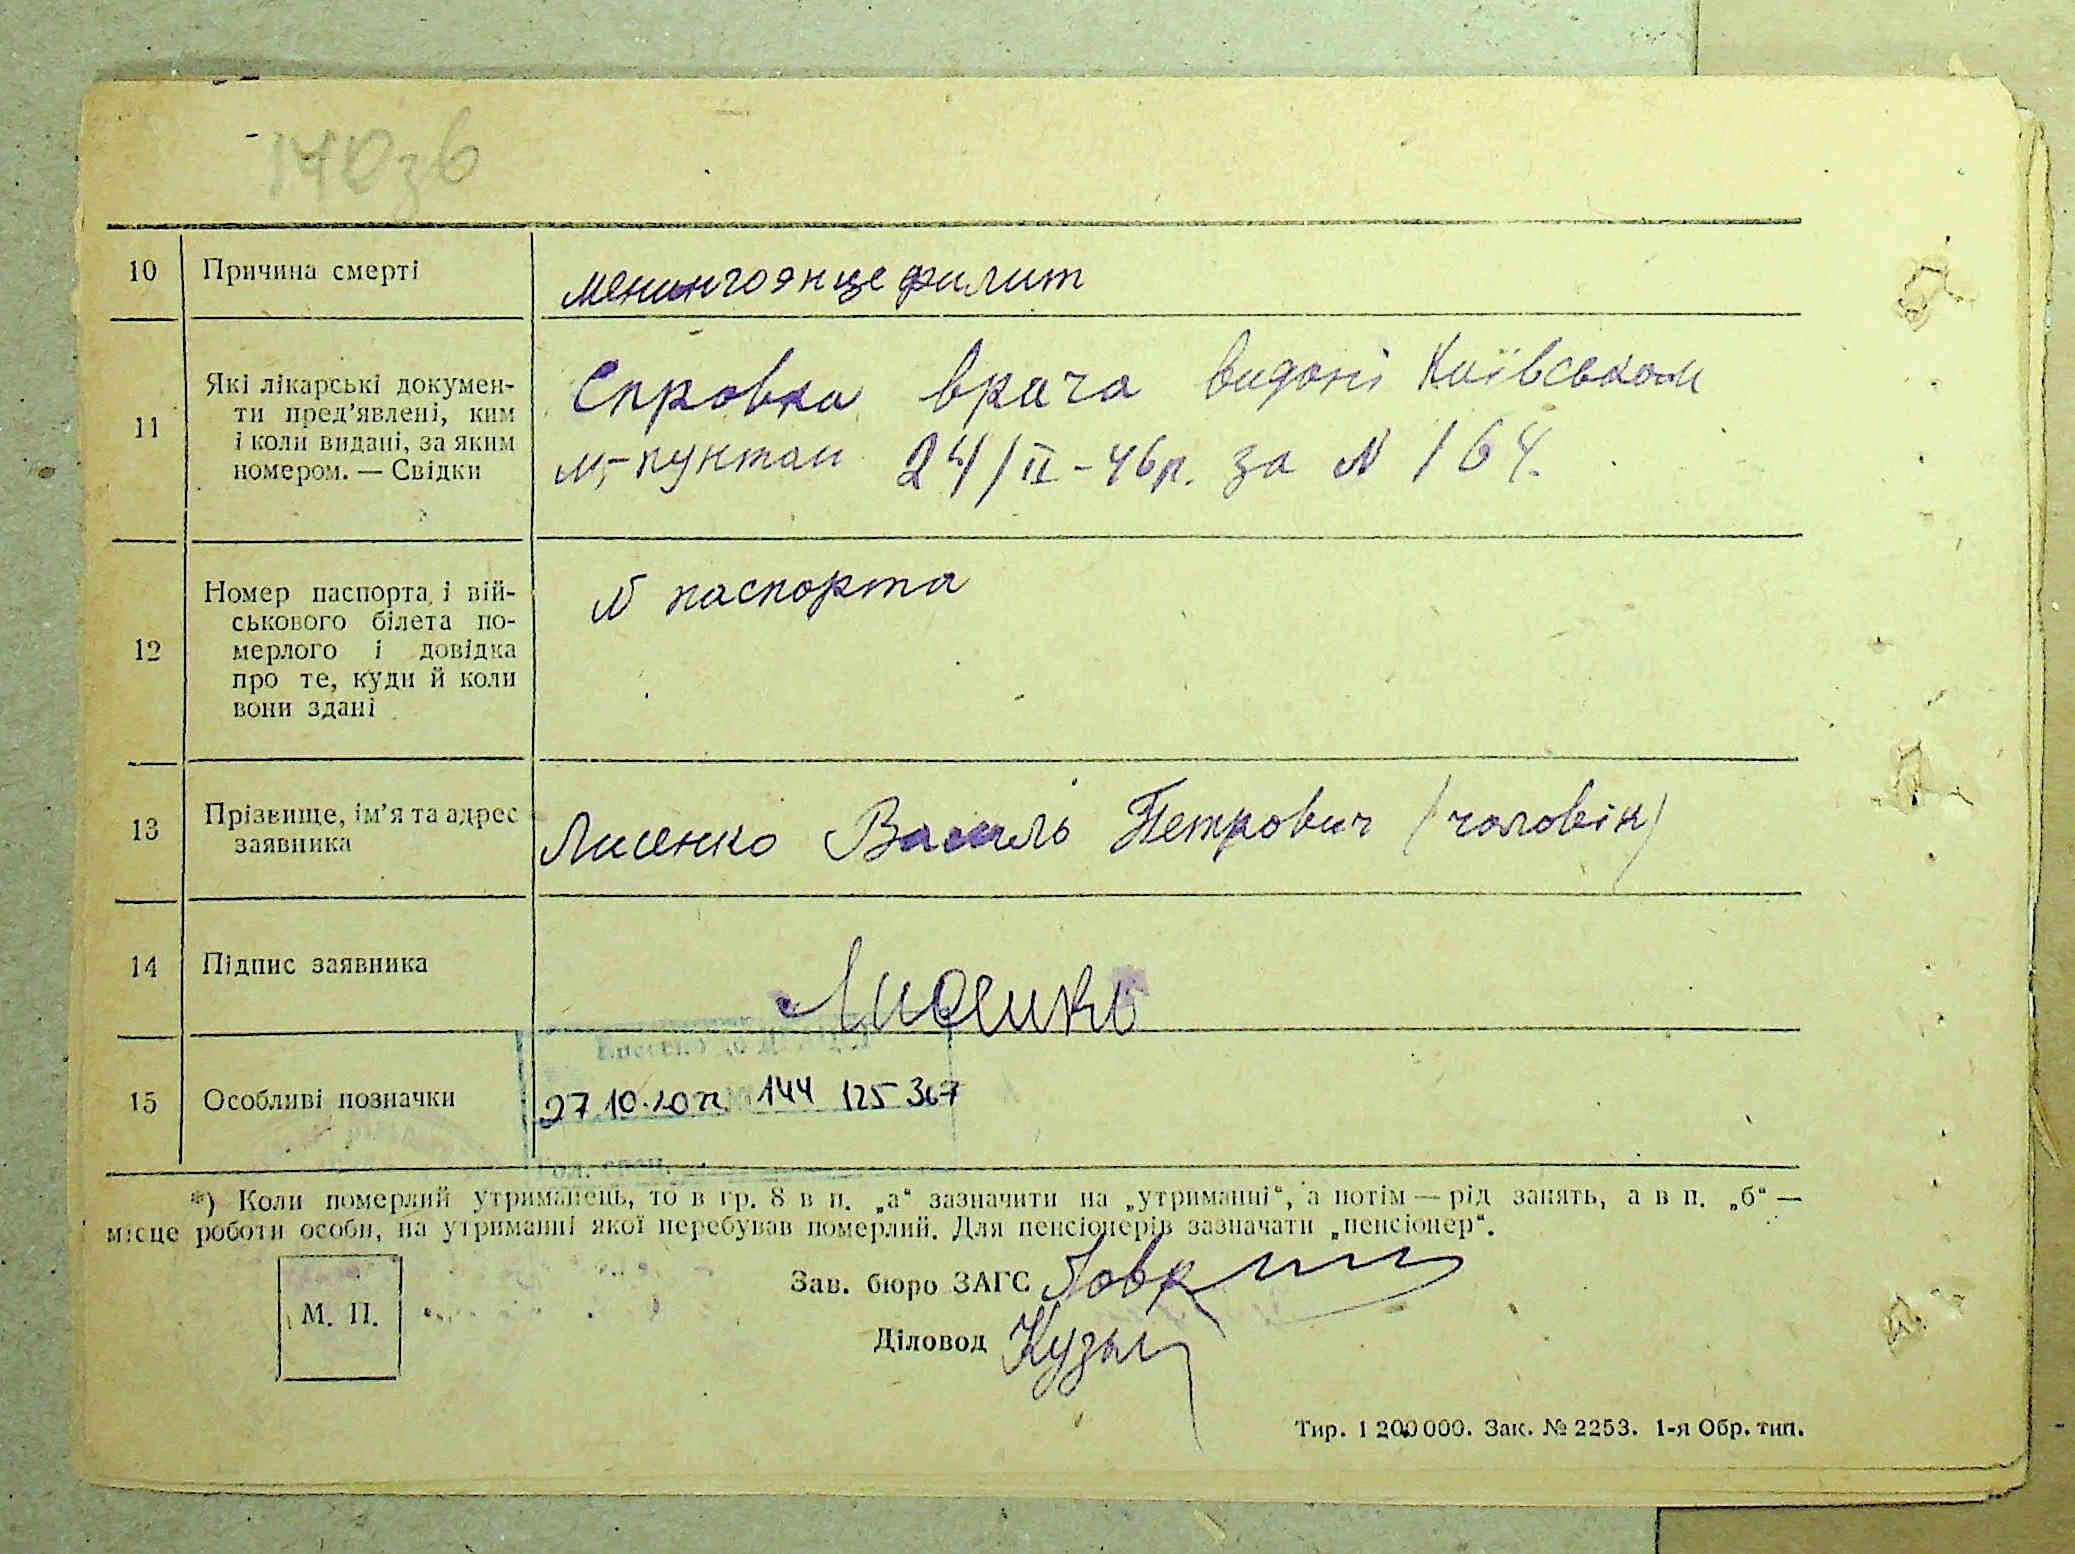 140зв
10 Причина смерті менингоэнцефилит
11 Які лікарські докумен-
ти пред'явлені, ким
і коли видані, за яким
номером. — Свідки
Справка врача видані Київськом
м,-пунктам 24/II-46р. за N 164.
12 Номер паспорта і вій-
ськового білета по-
мерлого і довідка
про те, куди й коли
вони здані
N паспорта
13 Прізвище, ім'я та адрес
заявника
Лисенко Василь Петрович (чоловік)
14 Підпис заявника
Лисенко
15 Особливі позначки
27.10.2022 144 125 367
*) Коли померлий утриманець, то в гр. 8 в п. „а“ зазначити на „утриманні“, а потім — рід занять, а в п. „б“ —
місце роботи особи, на утриманні якої перебував померлий. Для пенсіонерів зазначати „пенсіонер“.
Зав. бюро ЗАГС
М. П.
Діловод
Тир. 1 200 000. Зак. № 2253. 1-я Обр. тип.